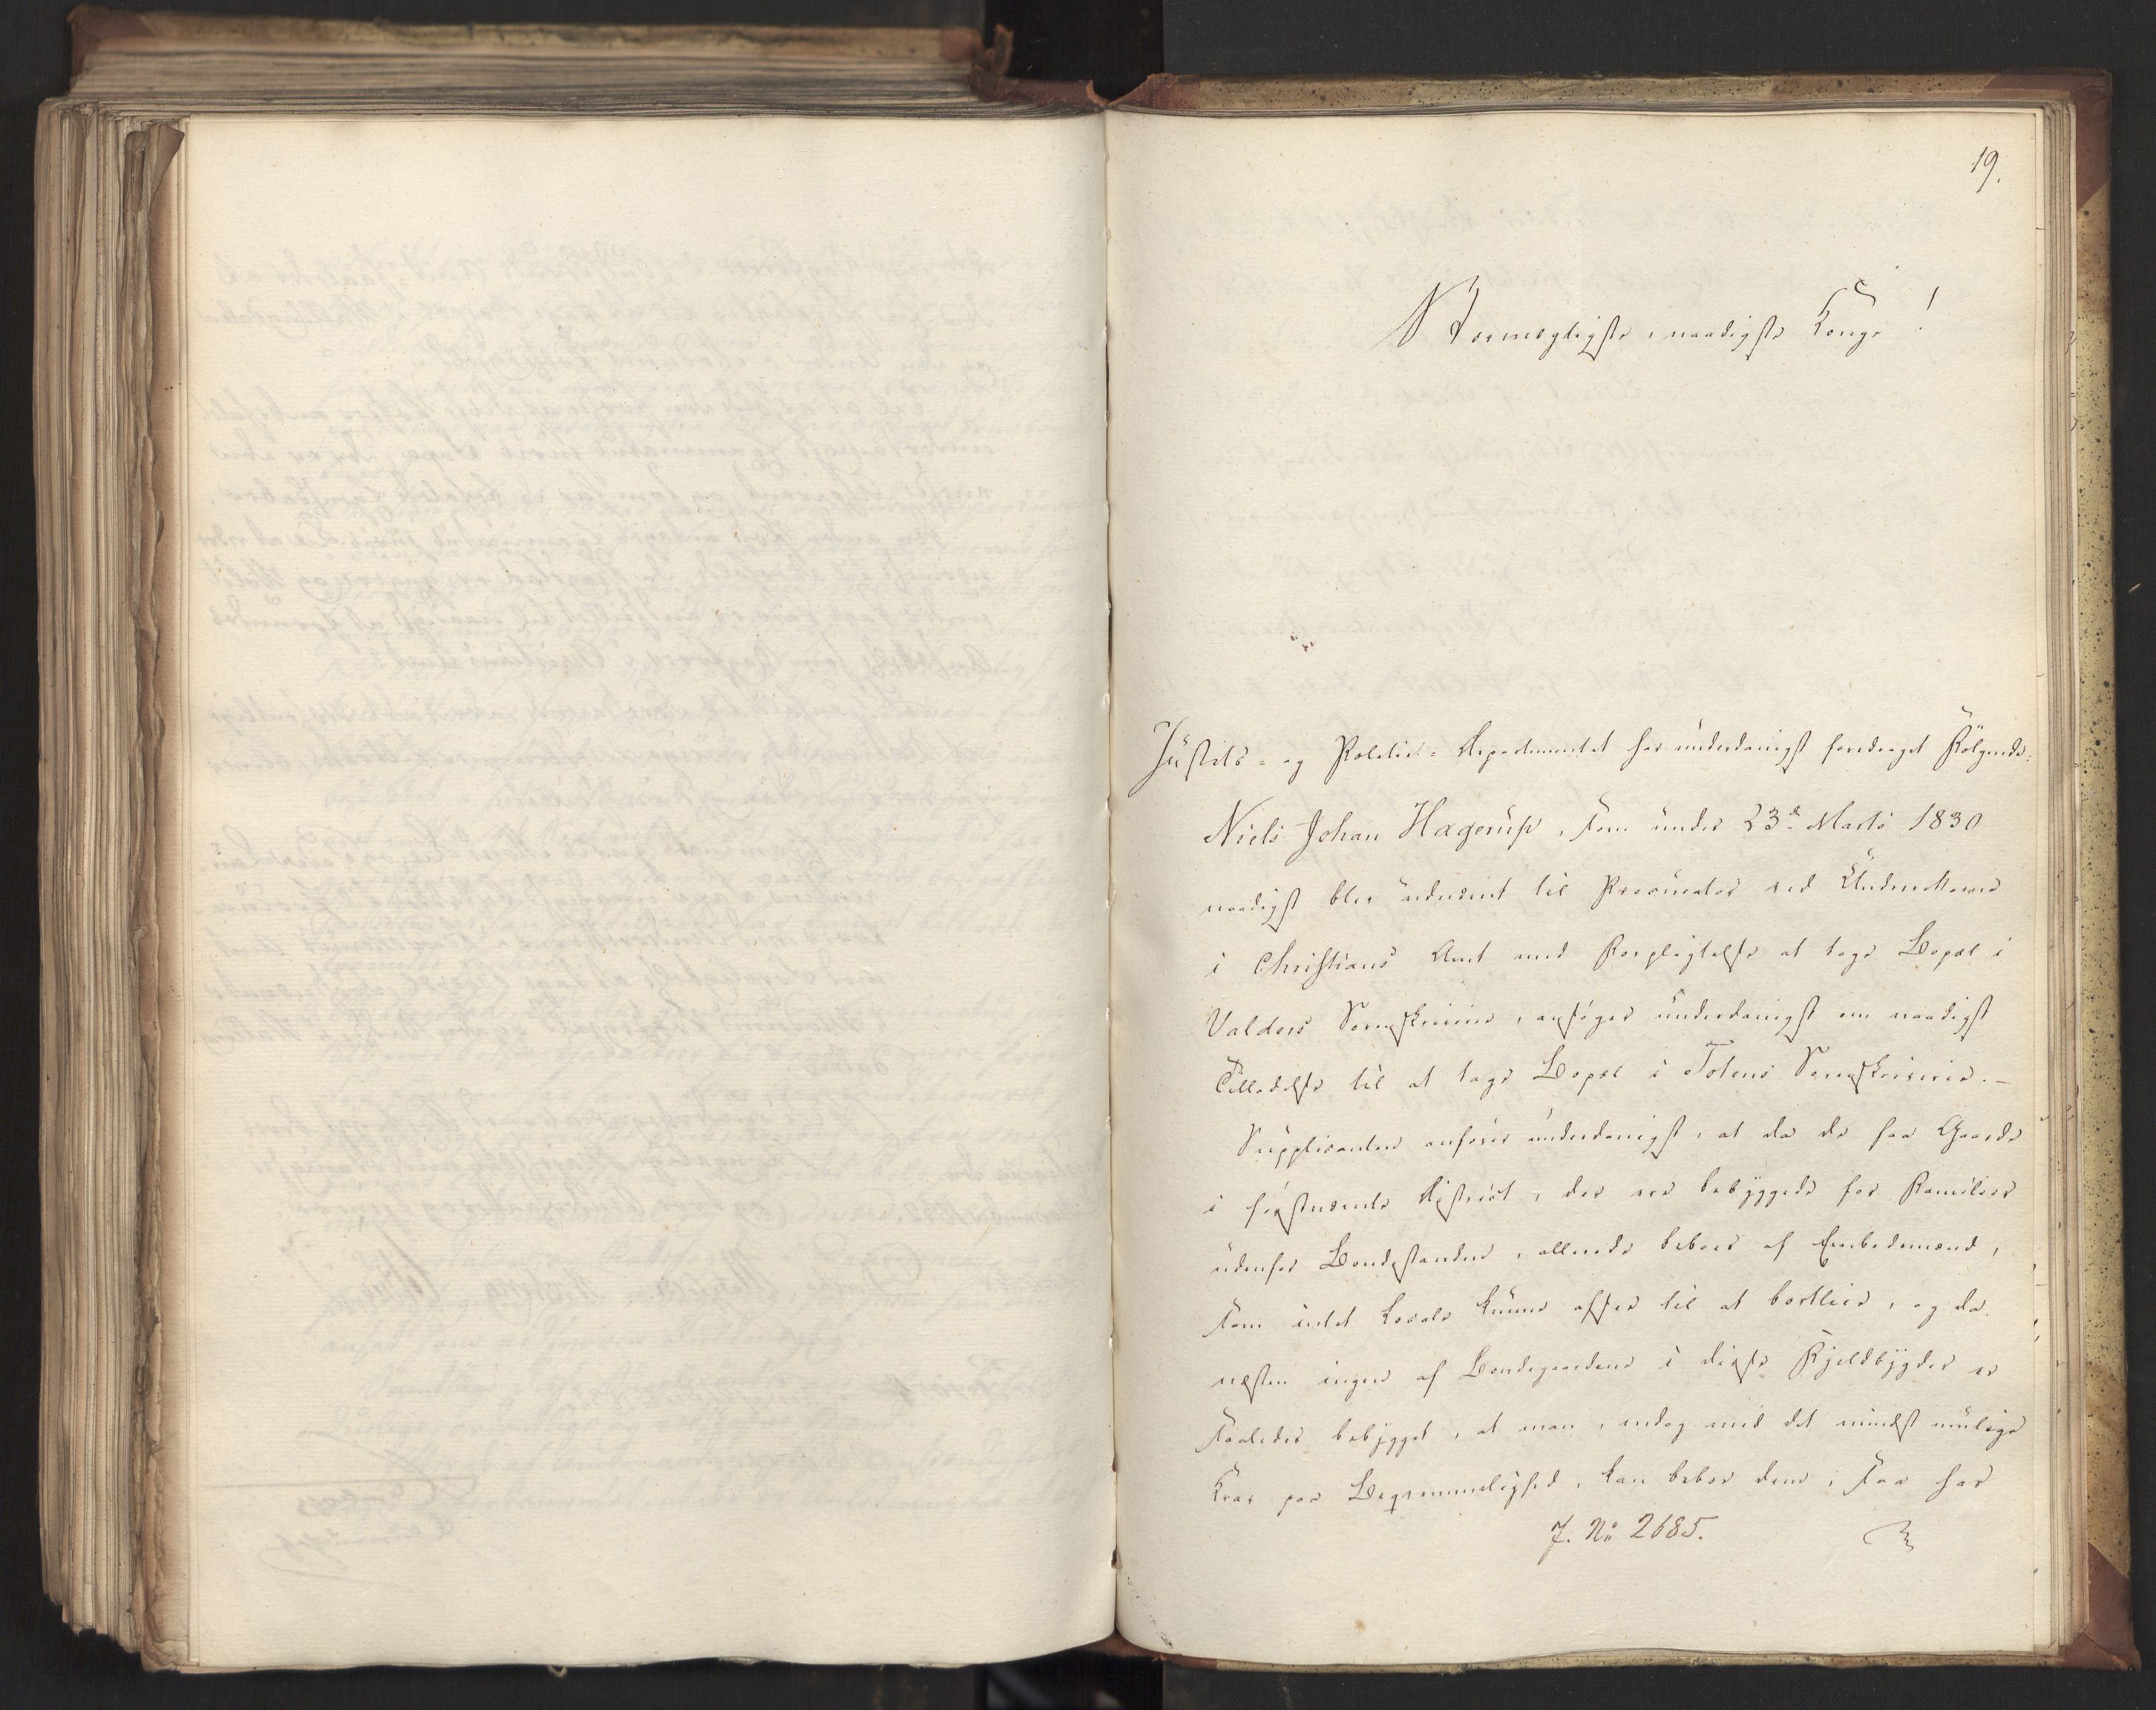 19.
Stormægtigste, naadigste Konge!
Justits- og Politie-Departementet har underdanigst foredraget Følgende:
Niels Johan Hagerup, som under 23de Marts 1830
naadigst blev udnævnt til Procurator ved Underretterne
i Christians Amt med Forpligtelse at tage Bopæl i
Valders Sorenskriverie, ansøger underdanigst om naadigst
Tilladelse til at tage Bopæl i Totens Sorenskriverie.-
Supplicanten anfører underdanigst, at da de faa Gaarde
i førstnævnte District, der ere bebyggede for Familier
udenfor Bondestanden, allerede beboes af Embedsmænd,
som intet Locale kunne afsee til at bortleie, og da
næsten ingen af Bondegaardene i disse Fjeldbygder er
saaledes bebygget, at man, endog med det mindst mulige
Krav paa Beqvemmelighed, kan beboe dem, saa har
J. No 2685.